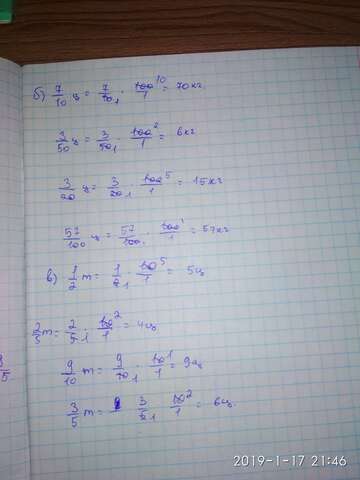 б) 7/10 ц = 7/10 1 · 100 10/1 = 70кг.
3/50 ц = 3/50 1 · 100 2/1 = 6кг
3/20 ц = 3/20 1 · 100 5/1 = 15кг
57/100 ц = 57/100 1 · 100 1/1 = 57кг
в) 1/2 т = 1/2 1 · 10 5/1 = 5ц
2/5 т = 2/5 1 · 10 2/1 = 4ц
9/10 т = 9/10 1 · 10 1/1 = 9ц
3/5 т = 3/5 1 · 10 2/1 = 6ц.
2019-1-17 21:46